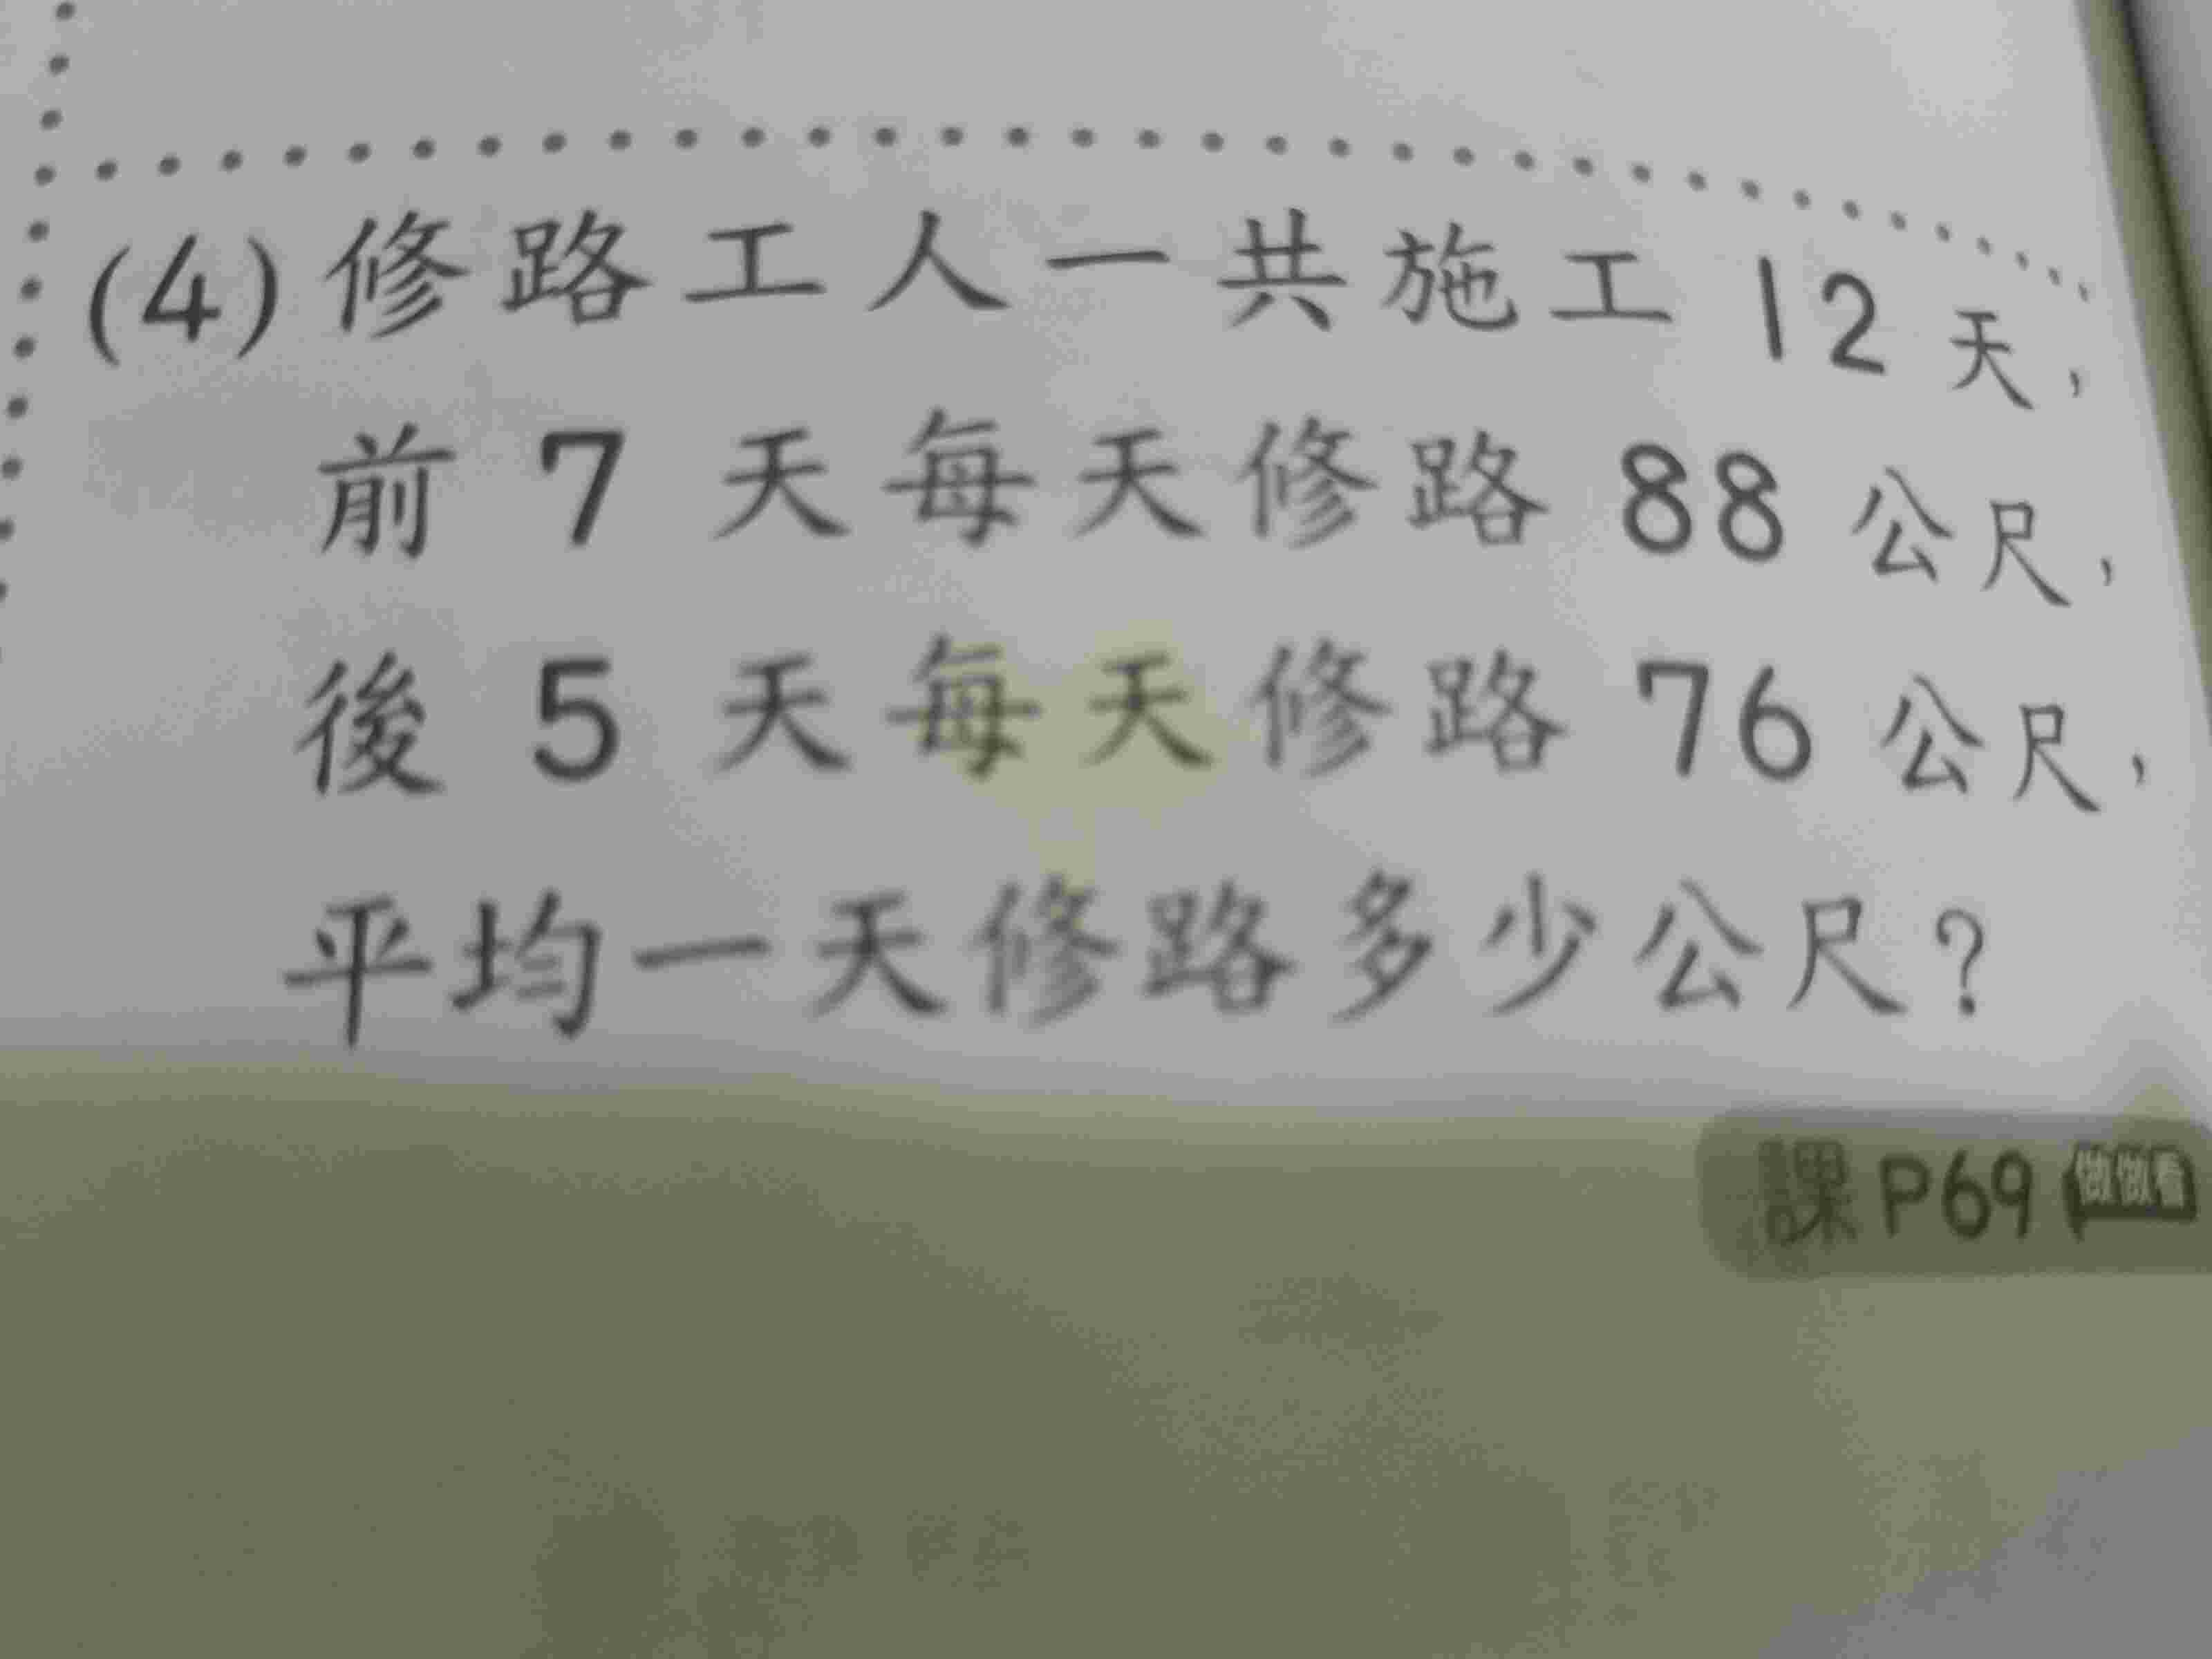 (4) 修路工人一共施工 12 天，
前 7 天每天修路 88 公尺，
後 5 天每天修路 76 公尺，
平均一天修路多少公尺？
課 P69 做做看